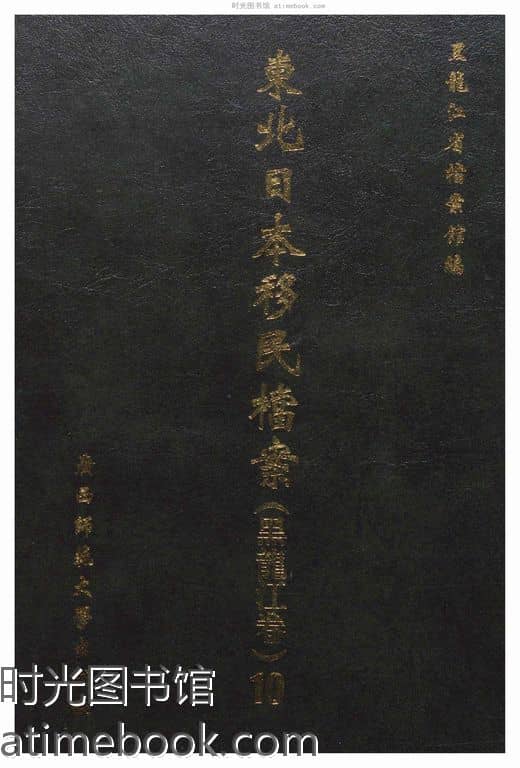 时光图书馆 atimebook.com
黑龍江省檔案館編
東北日本移民檔案（黑龍江卷）10
廣西師範大學出
时光图书馆
atimebook.com